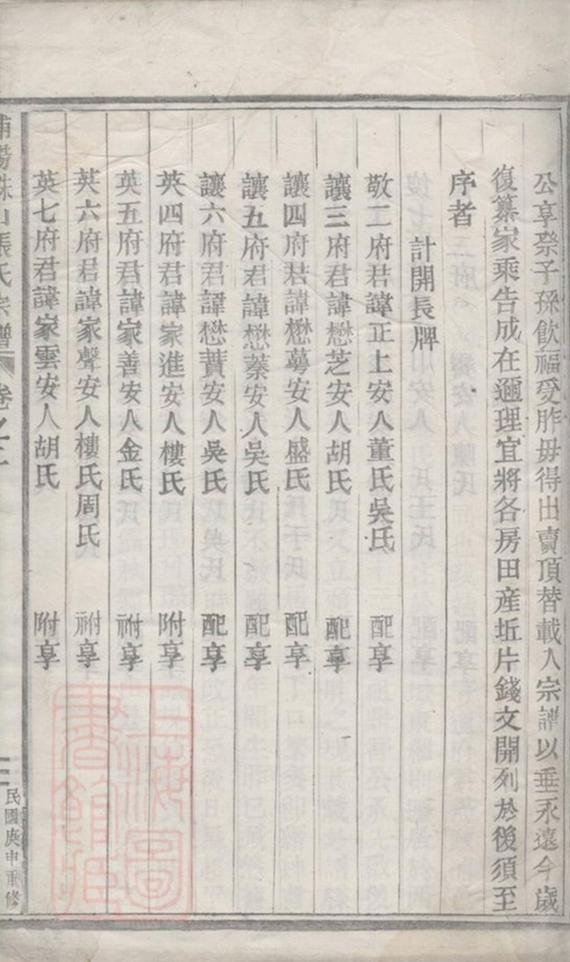 公享祭子孫飲福受胙毋得出賣頂替載入宗譜以垂永遠今歲
復纂家乘告成在邇理宜將各房田產坵片錢文開列於後須至
序者
計開長牌
敬二府君諱正上安人董氏吳氏 配享
讓三府君諱懋芝安人胡氏 配享
讓四府君諱懋蕚安人盛氏 配享
讓五府君諱懋蓁安人吳氏 配享
讓六府君諱懋蕡安人吳氏 配享
英四府君諱家進安人樓氏 附享
英五府君諱家善安人金氏 祔享
英六府君諱家聲安人樓氏周氏 祔享
英七府君諱家雲安人胡氏 附享
浦陽珠山張氏宗譜 卷之二
民國庚申重修
上海圖書館藏